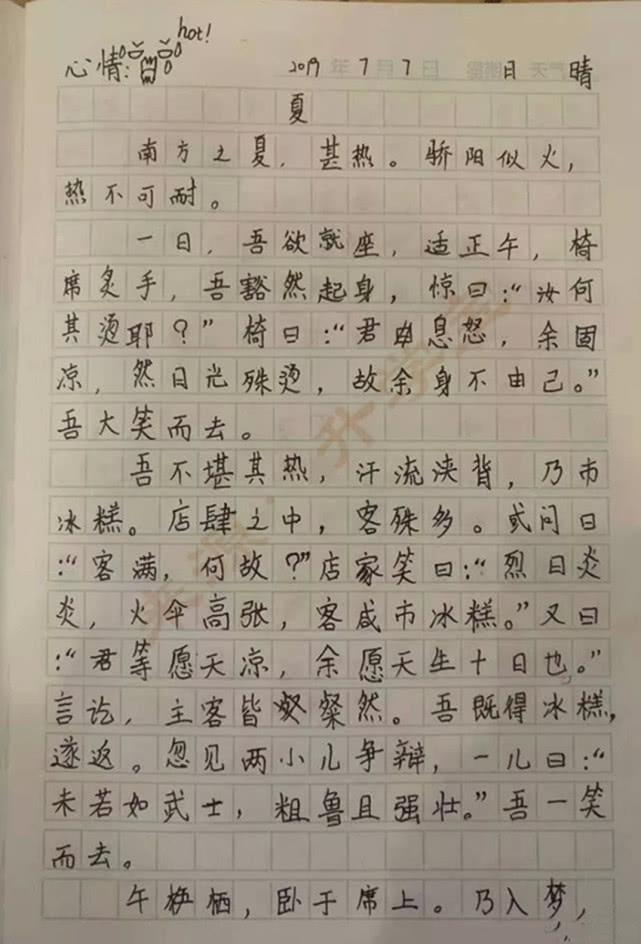 hot!
心情: 2019 7 7 日 晴
夏
南方之夏，甚热。骄阳似火，
热不可耐。
一日，吾欲就座，适正午，椅
席炙手，吾豁然起身，惊曰:“汝何
其烫耶？”椅曰:“君息怒，余固
凉，然日光殊烫，故余身不由己。”
吾大笑而去。
吾不堪其热，汗流浃背，乃市
冰糕。店肆之中，客殊多。或问曰
:“客满，何故？”店家笑曰:“烈日炎
炎，火伞高张，客咸市冰糕。”又曰
:“君等愿天凉，余愿天生十日也。”
言讫，主客皆粲然。吾既得冰糕，
遂返。忽见两小儿争辩，一儿曰:“
未若如武士，粗鲁且强壮。”吾一笑
而去。
午栖，卧于席上。乃入梦，